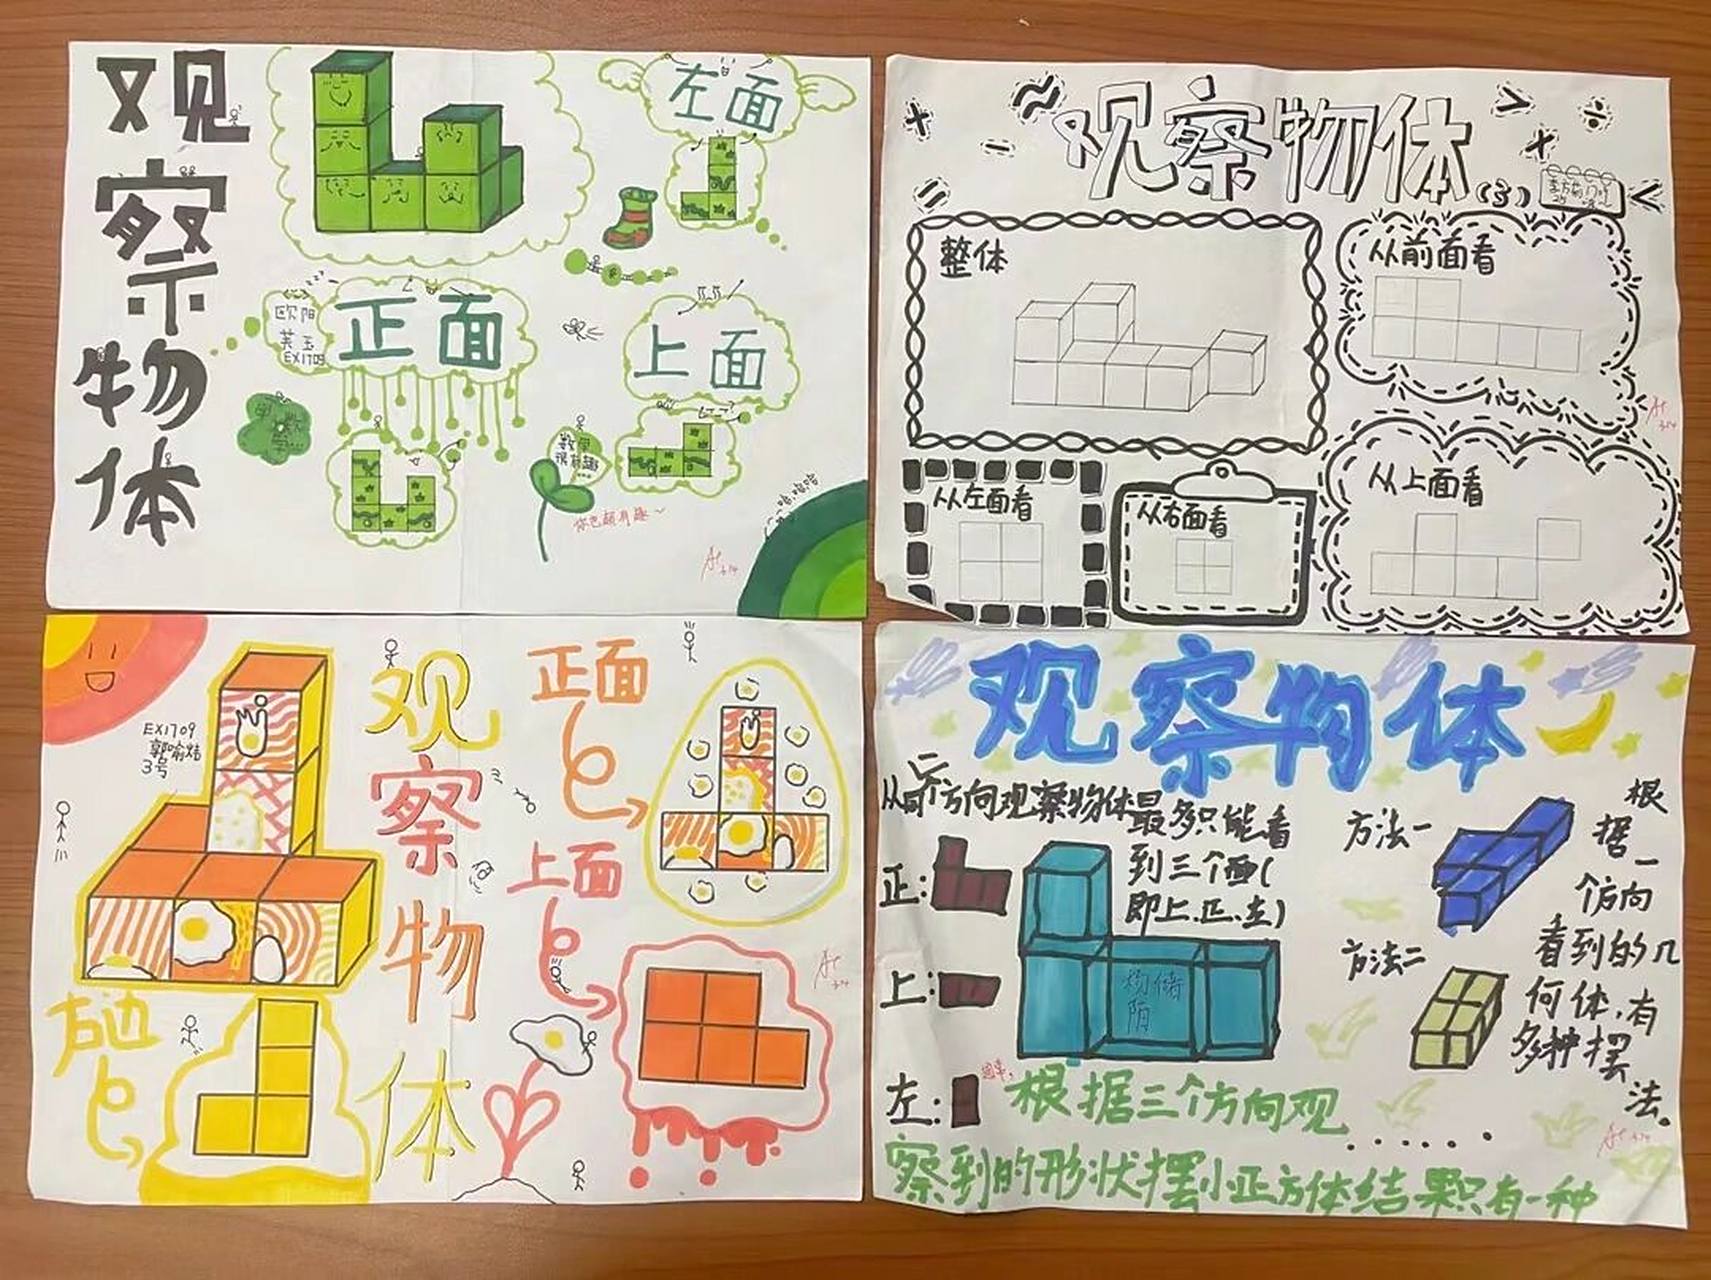 观
察
物
体
左面
欧阳
英玉
EX1709
正面
上面
数学
很有趣
你也颇有趣~
A+
3.14
观察物体(3)
整体
从前面看
从左面看
从右面看
从上面看
A+
3.14
EX1709
郭喻炜
3号
观
察
物
体
正面
上面
左边
A+
3.14
观察物体
从一个方向观察物体最多只能看
到三个面(
即上.正.左)
正:
上:
左:
方法一
方法二
根
据一
个方向
看到的几
何体,有
多种摆
法。
根据三个方向观
......
察到的形状摆小正方体结果只有一种
A+
3.14